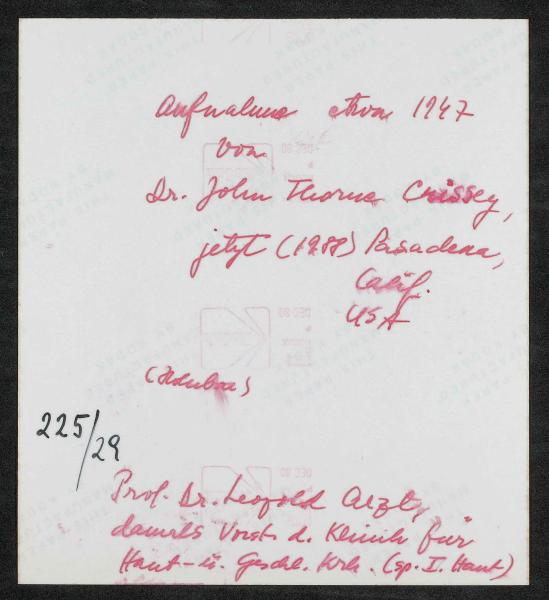 Aufnahme etwa 1947
von
Dr. John Thorne Crissey,
jetzt (1988) Pasadena,
Calif.
USA
225/29
Prof. Dr. Leopold Arzt,
damals Vorst. d. Klinik für
Haut- u. Geschl. Krh. (sp. I. Haut)